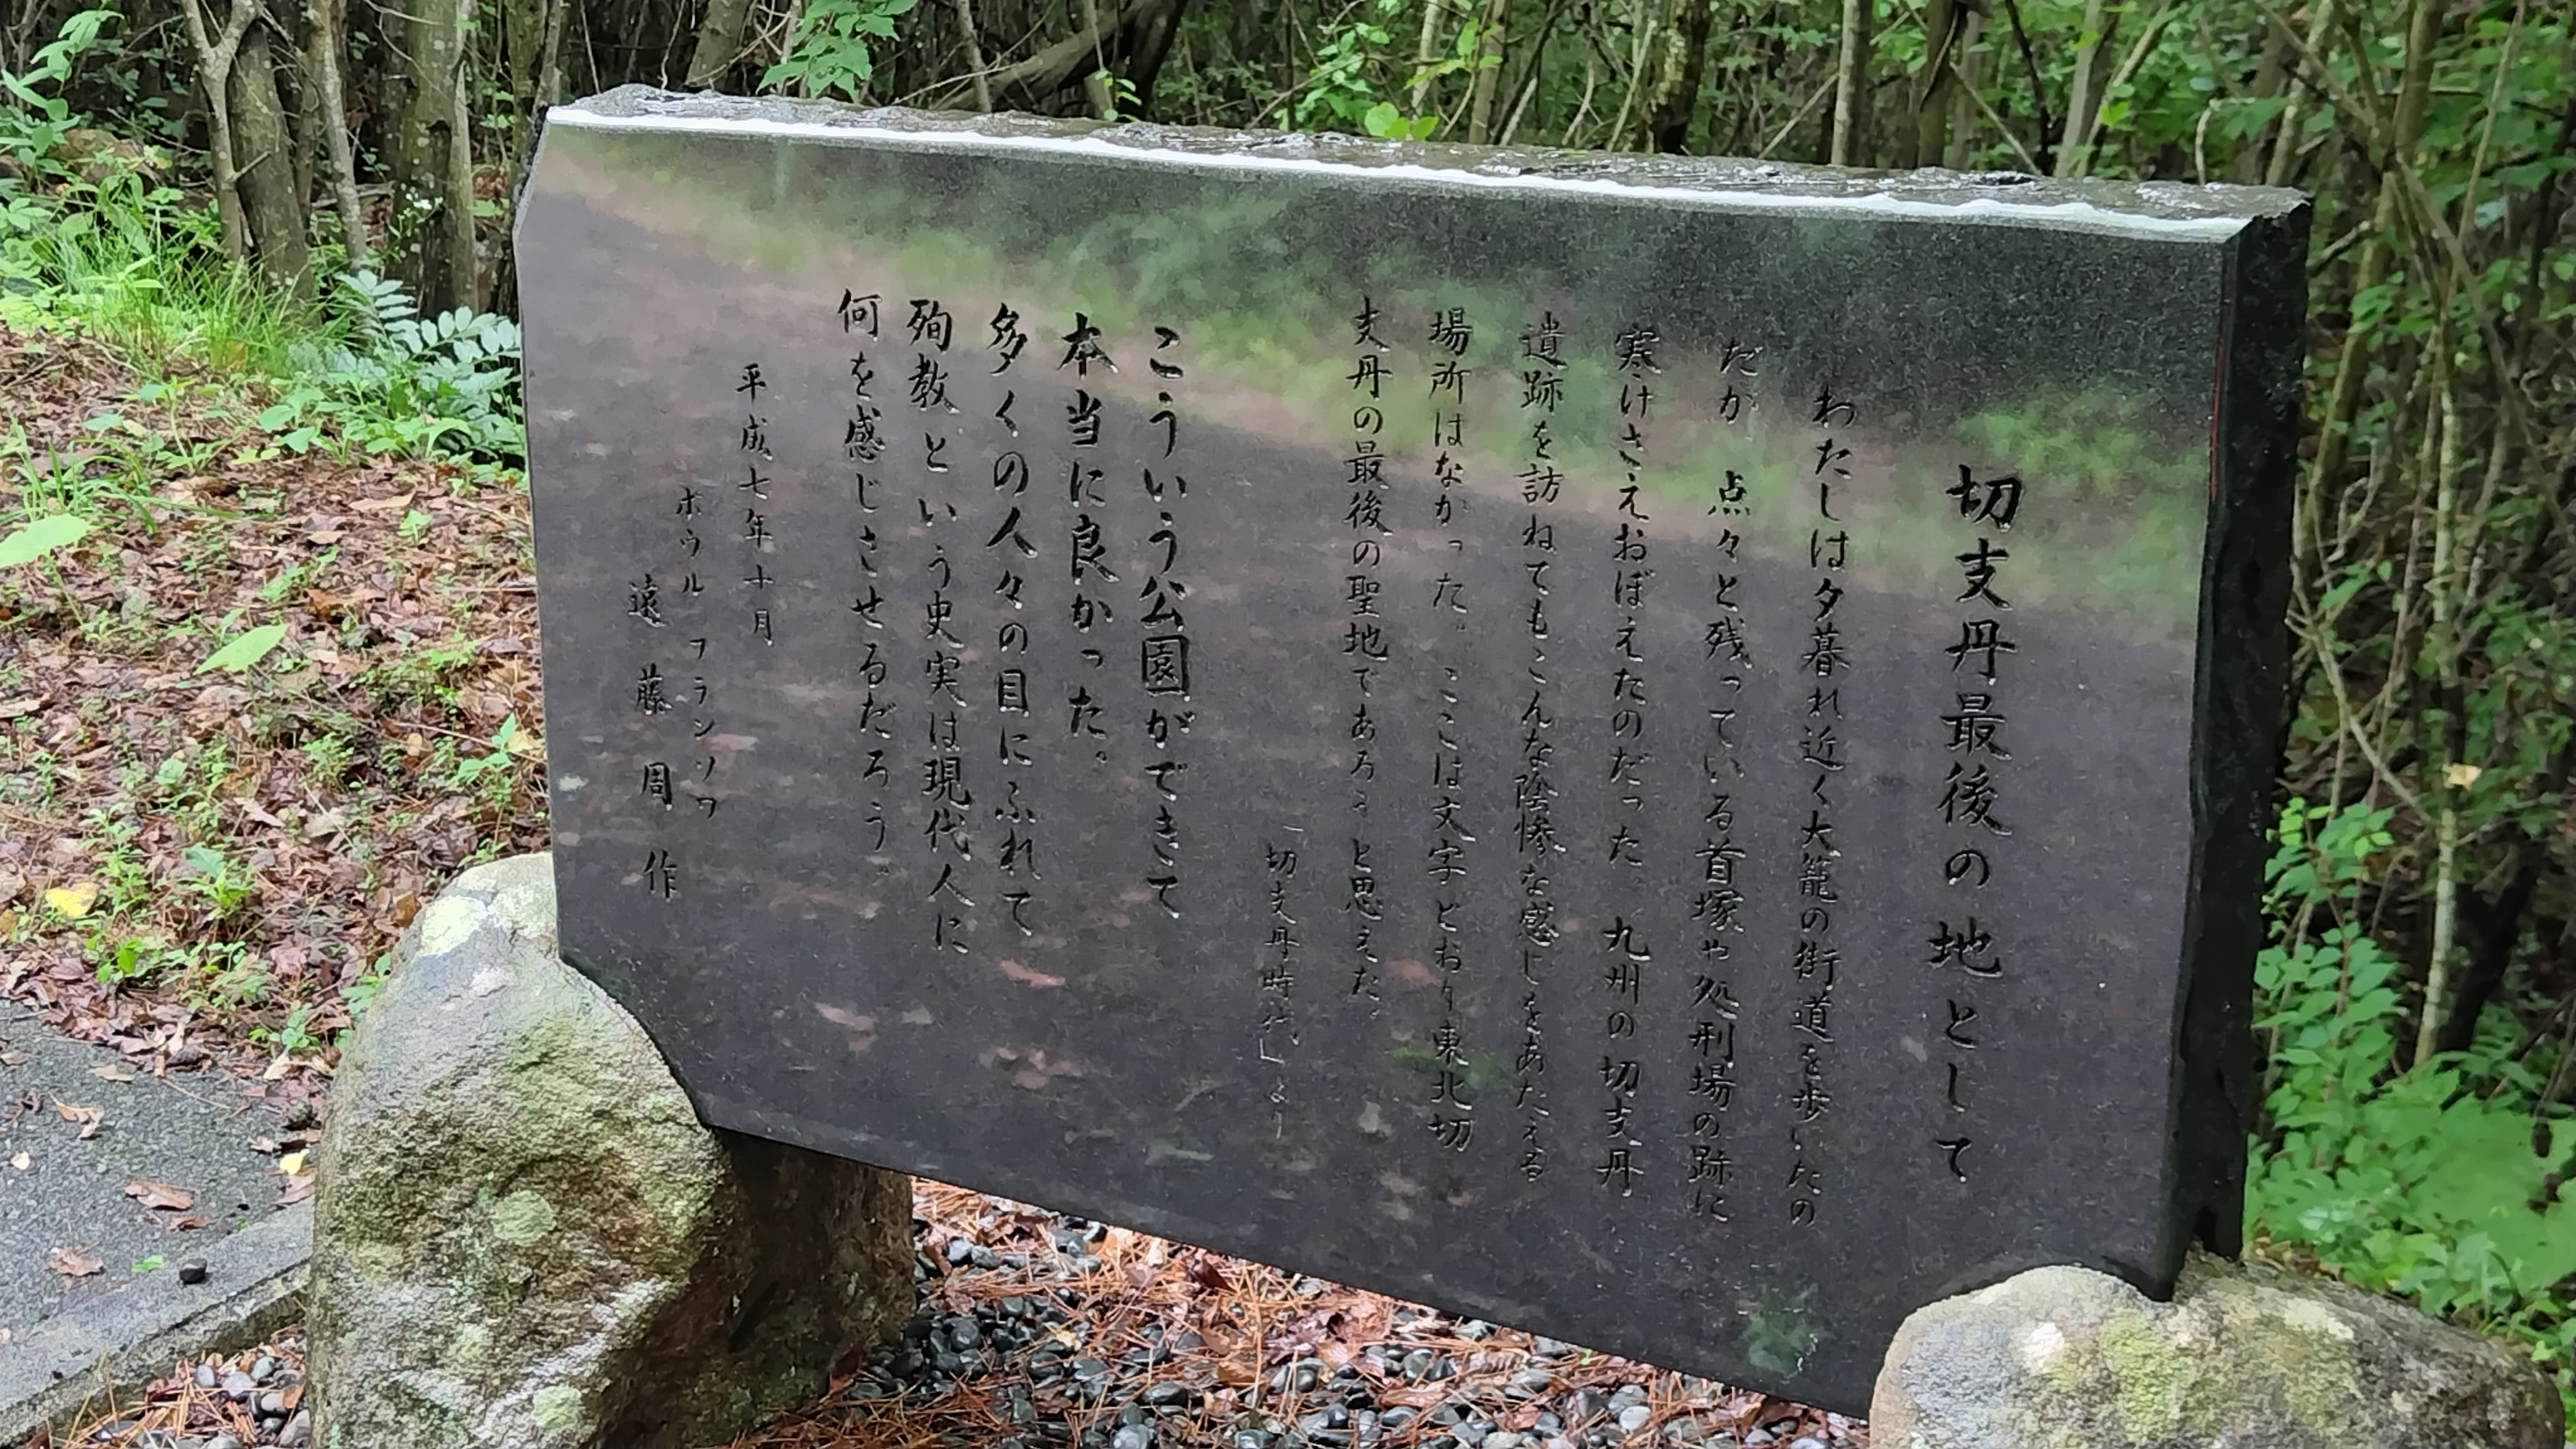 切支丹最後の地として
わたしは夕暮れ近く大籠の街道を歩いたの
だが 点々と残っている首塚や処刑場の跡に
寒けさえおぼえたのだった。九州の切支丹
遺跡を訪ねてもこんな陰惨な感じをあたえる
場所はなかった。ここは文字どおり東北切
支丹の最後の聖地であろうと思えた。
「切支丹時代」より
こういう公園ができて
本当に良かった。
多くの人々の目にふれて
殉教という史実は現代人に
何を感じさせるだろう。
平成七年十月
ポウル フランソワ
遠藤周作